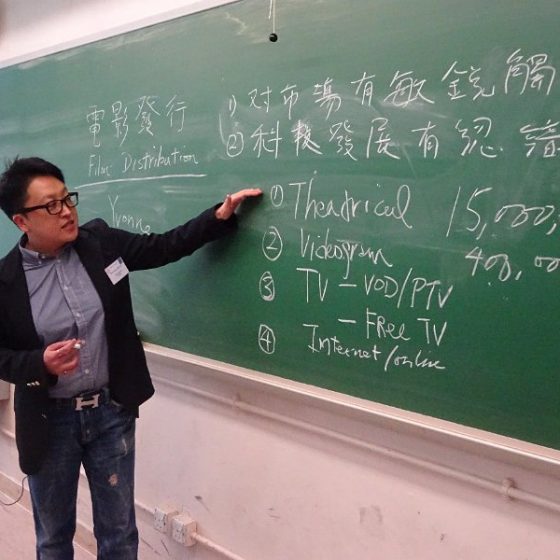 電影發行
Film Distribution
Yvonne
1) 对市場有敏銳觸
② 科技發展有認
① Theatrical 15,000,
② Videogram 400,00
③ TV - VOD/PTV
- FREE TV
④ Internet/online